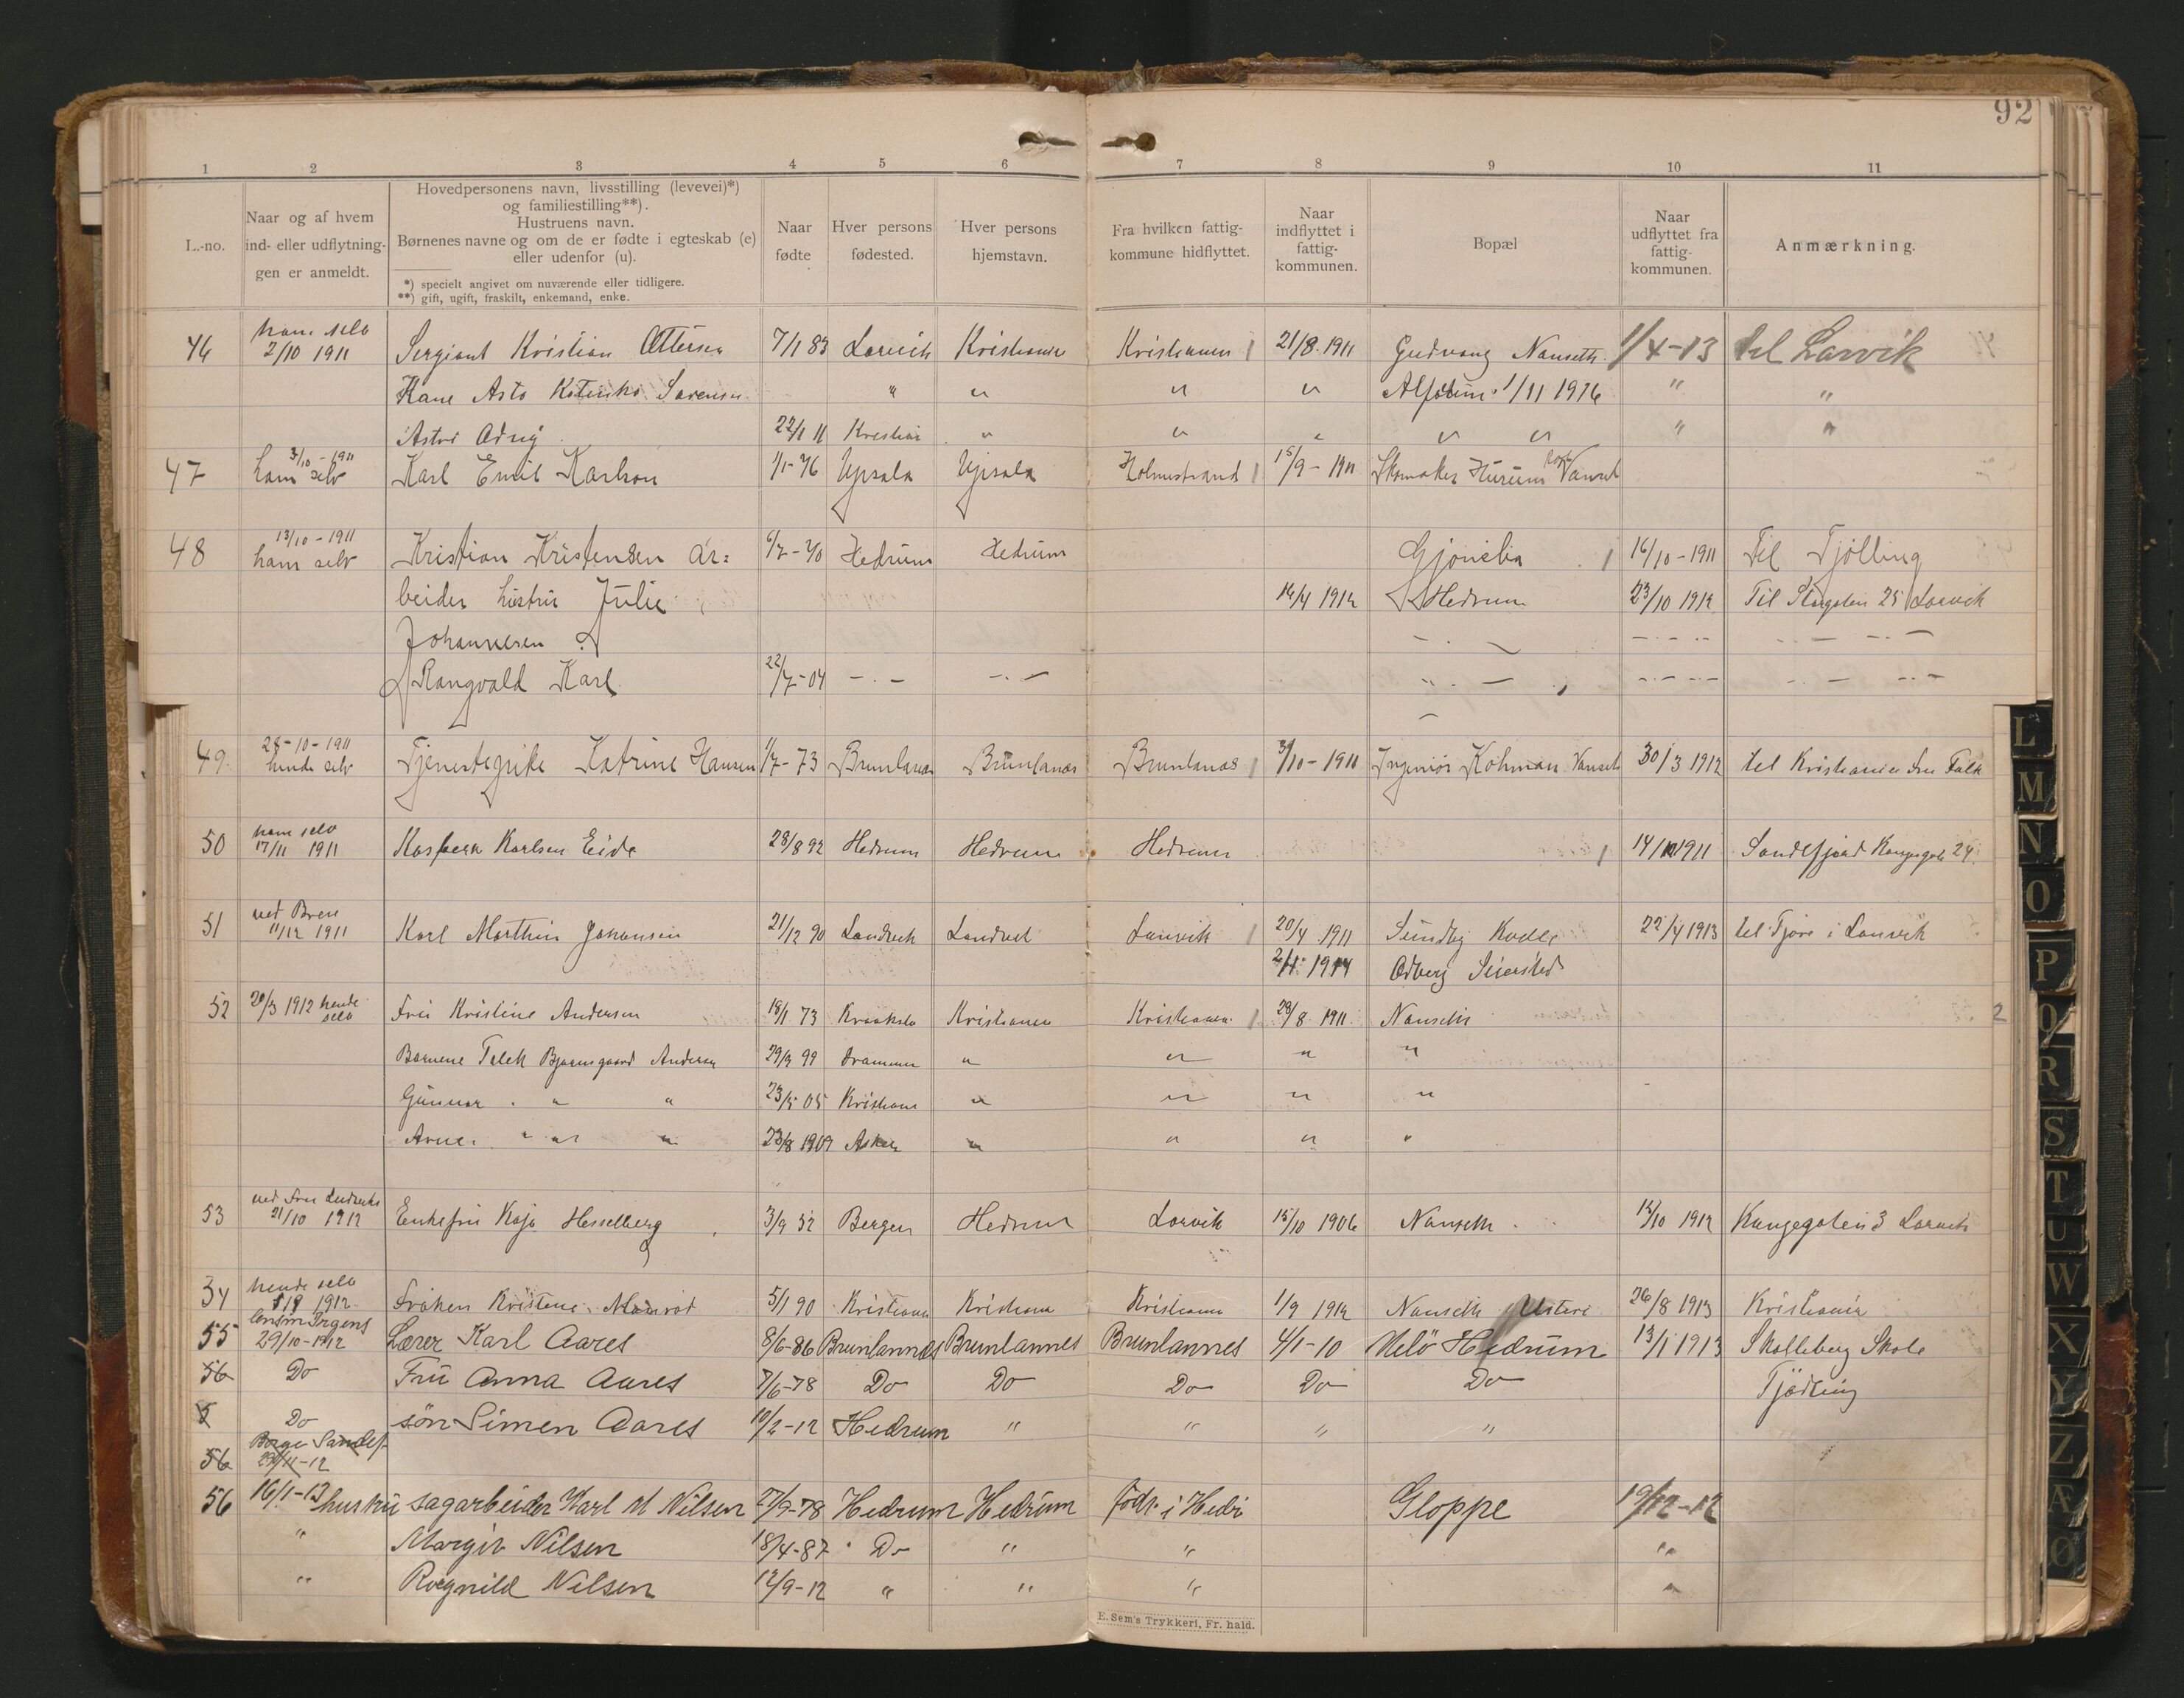 92
1 2 3 4 5 6 7 8 9 10 11
L.-no.
Naar og af hvem
ind- eller udflytnin-
gen er anmeldt.
Hovedpersonens navn, livsstilling (levevei)*)
og familiestilling**).
Hustruens navn.
Børnenes navne og om de er fødte i egteskab (e)
eller udenfor (u).
*) specielt angivet om nuværende eller tidligere.
**) gift, ugift, fraskilt, enkemand, enke.
Naar
fødte
Hver persons
fødested.
Hver persons
hjemstavn.
Fra hvilken fattig-
kommune hidflyttet.
Naar
indflyttet i
fattig-
kommunen.
Bopæl
Naar
udflyttet fra
fattig-
kommunen.
Anmærkning.
46 ham selv 2/10 1911 Sergiant Kristian Ottersen 7/1 83 Larvik Kristiania Kristiania 21/8 1911 Gudvang Nanseth 1/4-13 til Larvik
Sørensen " " " " 1/11 1916 " "
Astri 22/1 11 Kristiania " " " " " " "
47 3/10-1911 ham selv Karl Emil Karlson 1/1-76 Upsala Upsala Holmestrand 15/9-1911 Skomaker Hurum Nanset
48 13/10-1911 ham selv Kristian Kristensen ar= 6/7-70 Hedrum Hedrum 16/10-1911 Til Tjølling
beider hustru Julie 14/4 1912 Hedrum 23/10 1912 Til 25 Larvik
Johannesen
Rangvald Karl 22/7-04 -.- -.-
49 28-10-1911 hende selv Tjenestepike Katrine Hansen 1/7-73 Brunlanæs Brunlanæs Brunlanæs 3/10-1911 Ingeniør Kohman Nanset 30/3 1912 til Kristiania Fru Falk
50 ham selv 17/11 1911 Kasper Karlsen Eide 28/8 92 Hedrum Hedrum Hedrum 14/10 1911 Sandefjord Kongsgate 24
51 ved Brev 11/12 1911 Karl Marthin Johansen 21/12 90 Larvik 20/4 1911 Sundby Kodal 22/4 1913 til Tjøre i Larvik
1914
52 20/3 1912 hende selv Fru Kristine Andersen 18/1 73 Kristiania Kristiania 28/8 1911 Nanseth 2
Barnene Bjarnsgaard Andersen 29/9 99 Drammen " " " "
Gunnar " " 23/5 05 Kristiania " " " "
Arne " " " 23/8 1909 Asker " " " "
53 21/10 1912 Enkefru Kaja Hesselberg 3/9 52 Bergen Hedrum Larvik 15/10 1906 Nanseth 12/10 1912 Kongegaten 3 Larvik
54 hende selv 1912 Frøken Kristine 5/1 90 Kristiania Kristiania Kristiania 1/9 1912 Nanseth 26/8 1913 Kristiania
55 29/10-1912 Lærer Karl Aares 8/6-86 Brunlannes Brunlannes Brunlannes 4/1-10 Melø Hedrum 13/1 1913 Skalleberg Skole
56 Do Fru Anna Aares 7/6-78 Do Do Do Do Do Tjødling
Do søn Simen Aares 10/2-12 Hedrum " " " "
56
56 16/1-13 hustru sagarbeider Karl M Nilsen 27/9-78 Hedrum Hedrum født i Hedr. Gloppe 19/12-12
" Margit Nilsen 18/4-87 Do " " "
" Ragnild Nilsen 12/9-12 " " " "
E. Sem's Trykkeri, Fr. hald.
L
M
N
O
P
Q
R
S
T
U
W
X
Y
Z
Æ
Ø